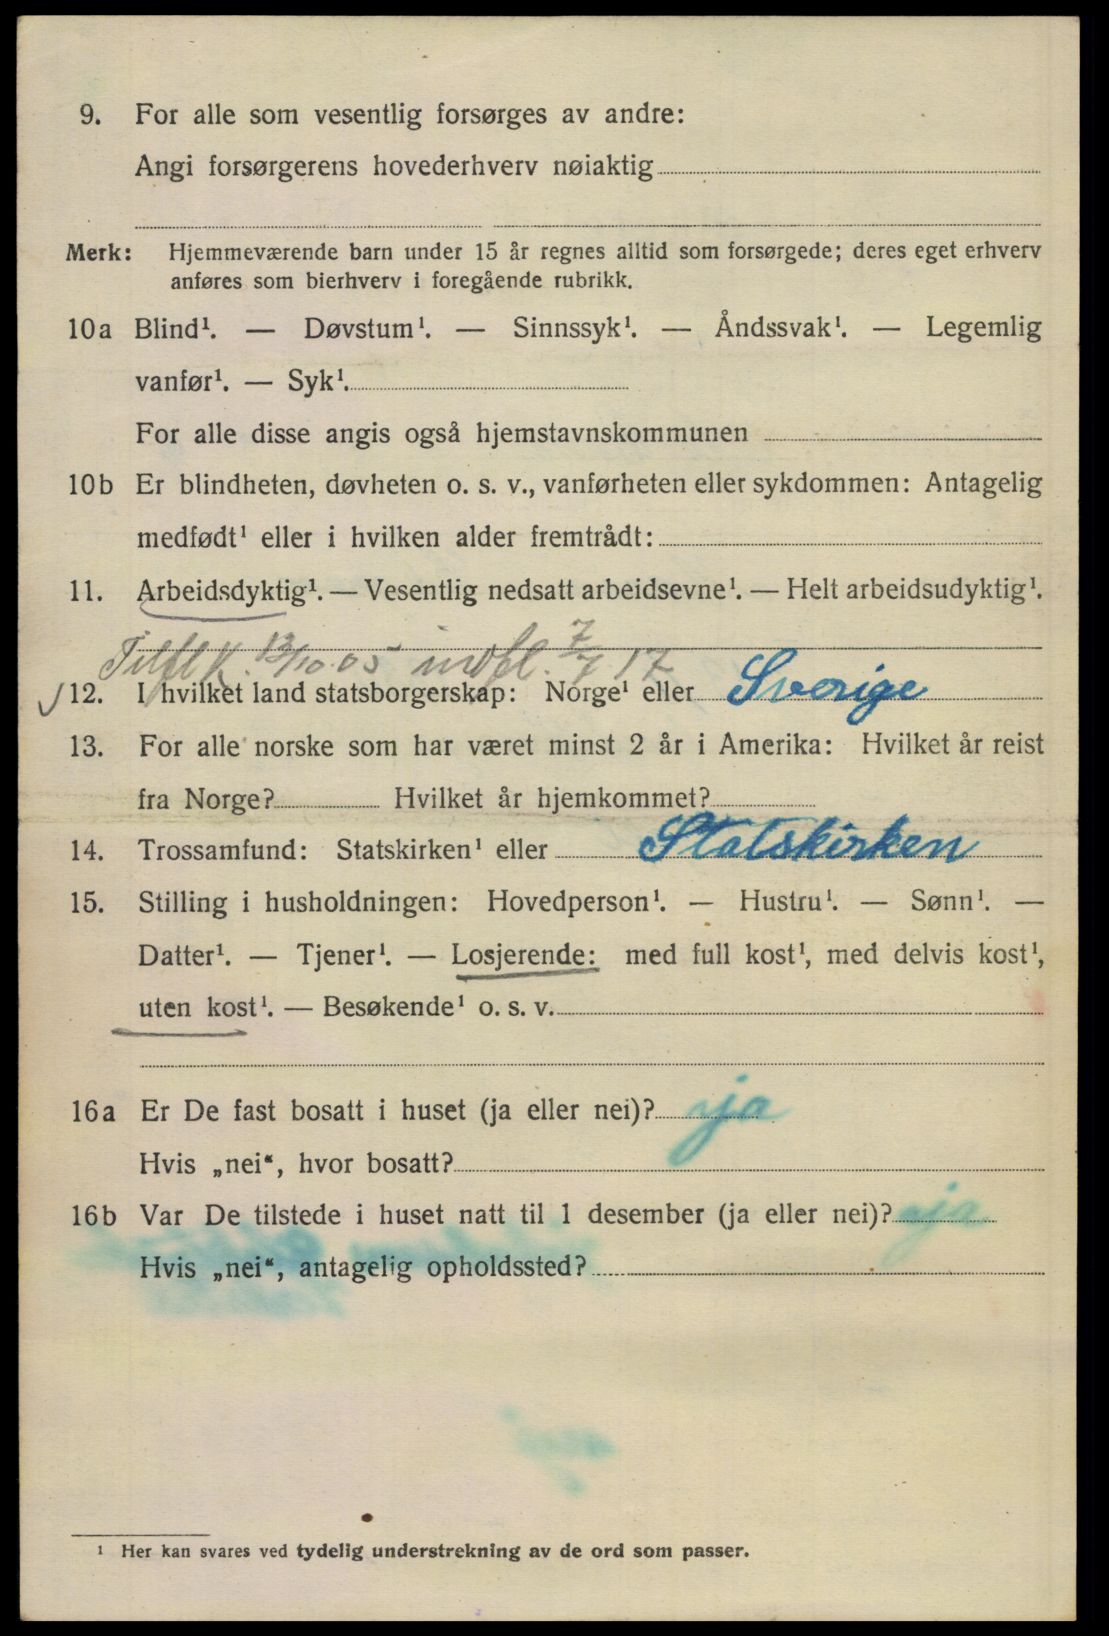 9. For alle som vesentlig forsørges av andre:
Angi forsørgerens hovederhverv nøiaktig
Merk: Hjemmeværende barn under 15 år regnes alltid som forsørgede; deres eget erhverv
anføres som bierhverv i foregående rubrikk.
10a Blind¹. — Døvstum¹. — Sinnssyk¹. — Åndssvak¹. — Legemlig
vanfør¹. — Syk¹.
For alle disse angis også hjemstavnskommunen
10b Er blindheten, døvheten o. s. v., vanførheten eller sykdommen: Antagelig
medfødt¹ eller i hvilken alder fremtrådt:
11. Arbeidsdyktig¹. — Vesentlig nedsatt arbeidsevne¹. — Helt arbeidsudyktig¹.
Tilfl K. 13/10 05 indfl. 7/7 17
12. I hvilket land statsborgerskap: Norge¹ eller Sverige
13. For alle norske som har været minst 2 år i Amerika: Hvilket år reist
fra Norge? Hvilket år hjemkommet?
14. Trossamfund: Statskirken¹ eller Statskirken
15. Stilling i husholdningen: Hovedperson¹. — Hustru¹. — Sønn¹. —
Datter¹. — Tjener¹. — Losjerende: med full kost¹, med delvis kost¹,
uten kost¹. — Besøkende¹ o. s. v.
16a Er De fast bosatt i huset (ja eller nei)? ja
Hvis „nei“, hvor bosatt?
16b Var De tilstede i huset natt til 1 desember (ja eller nei)? ja
Hvis „nei“, antagelig opholdssted?
¹ Her kan svares ved tydelig understrekning av de ord som passer.